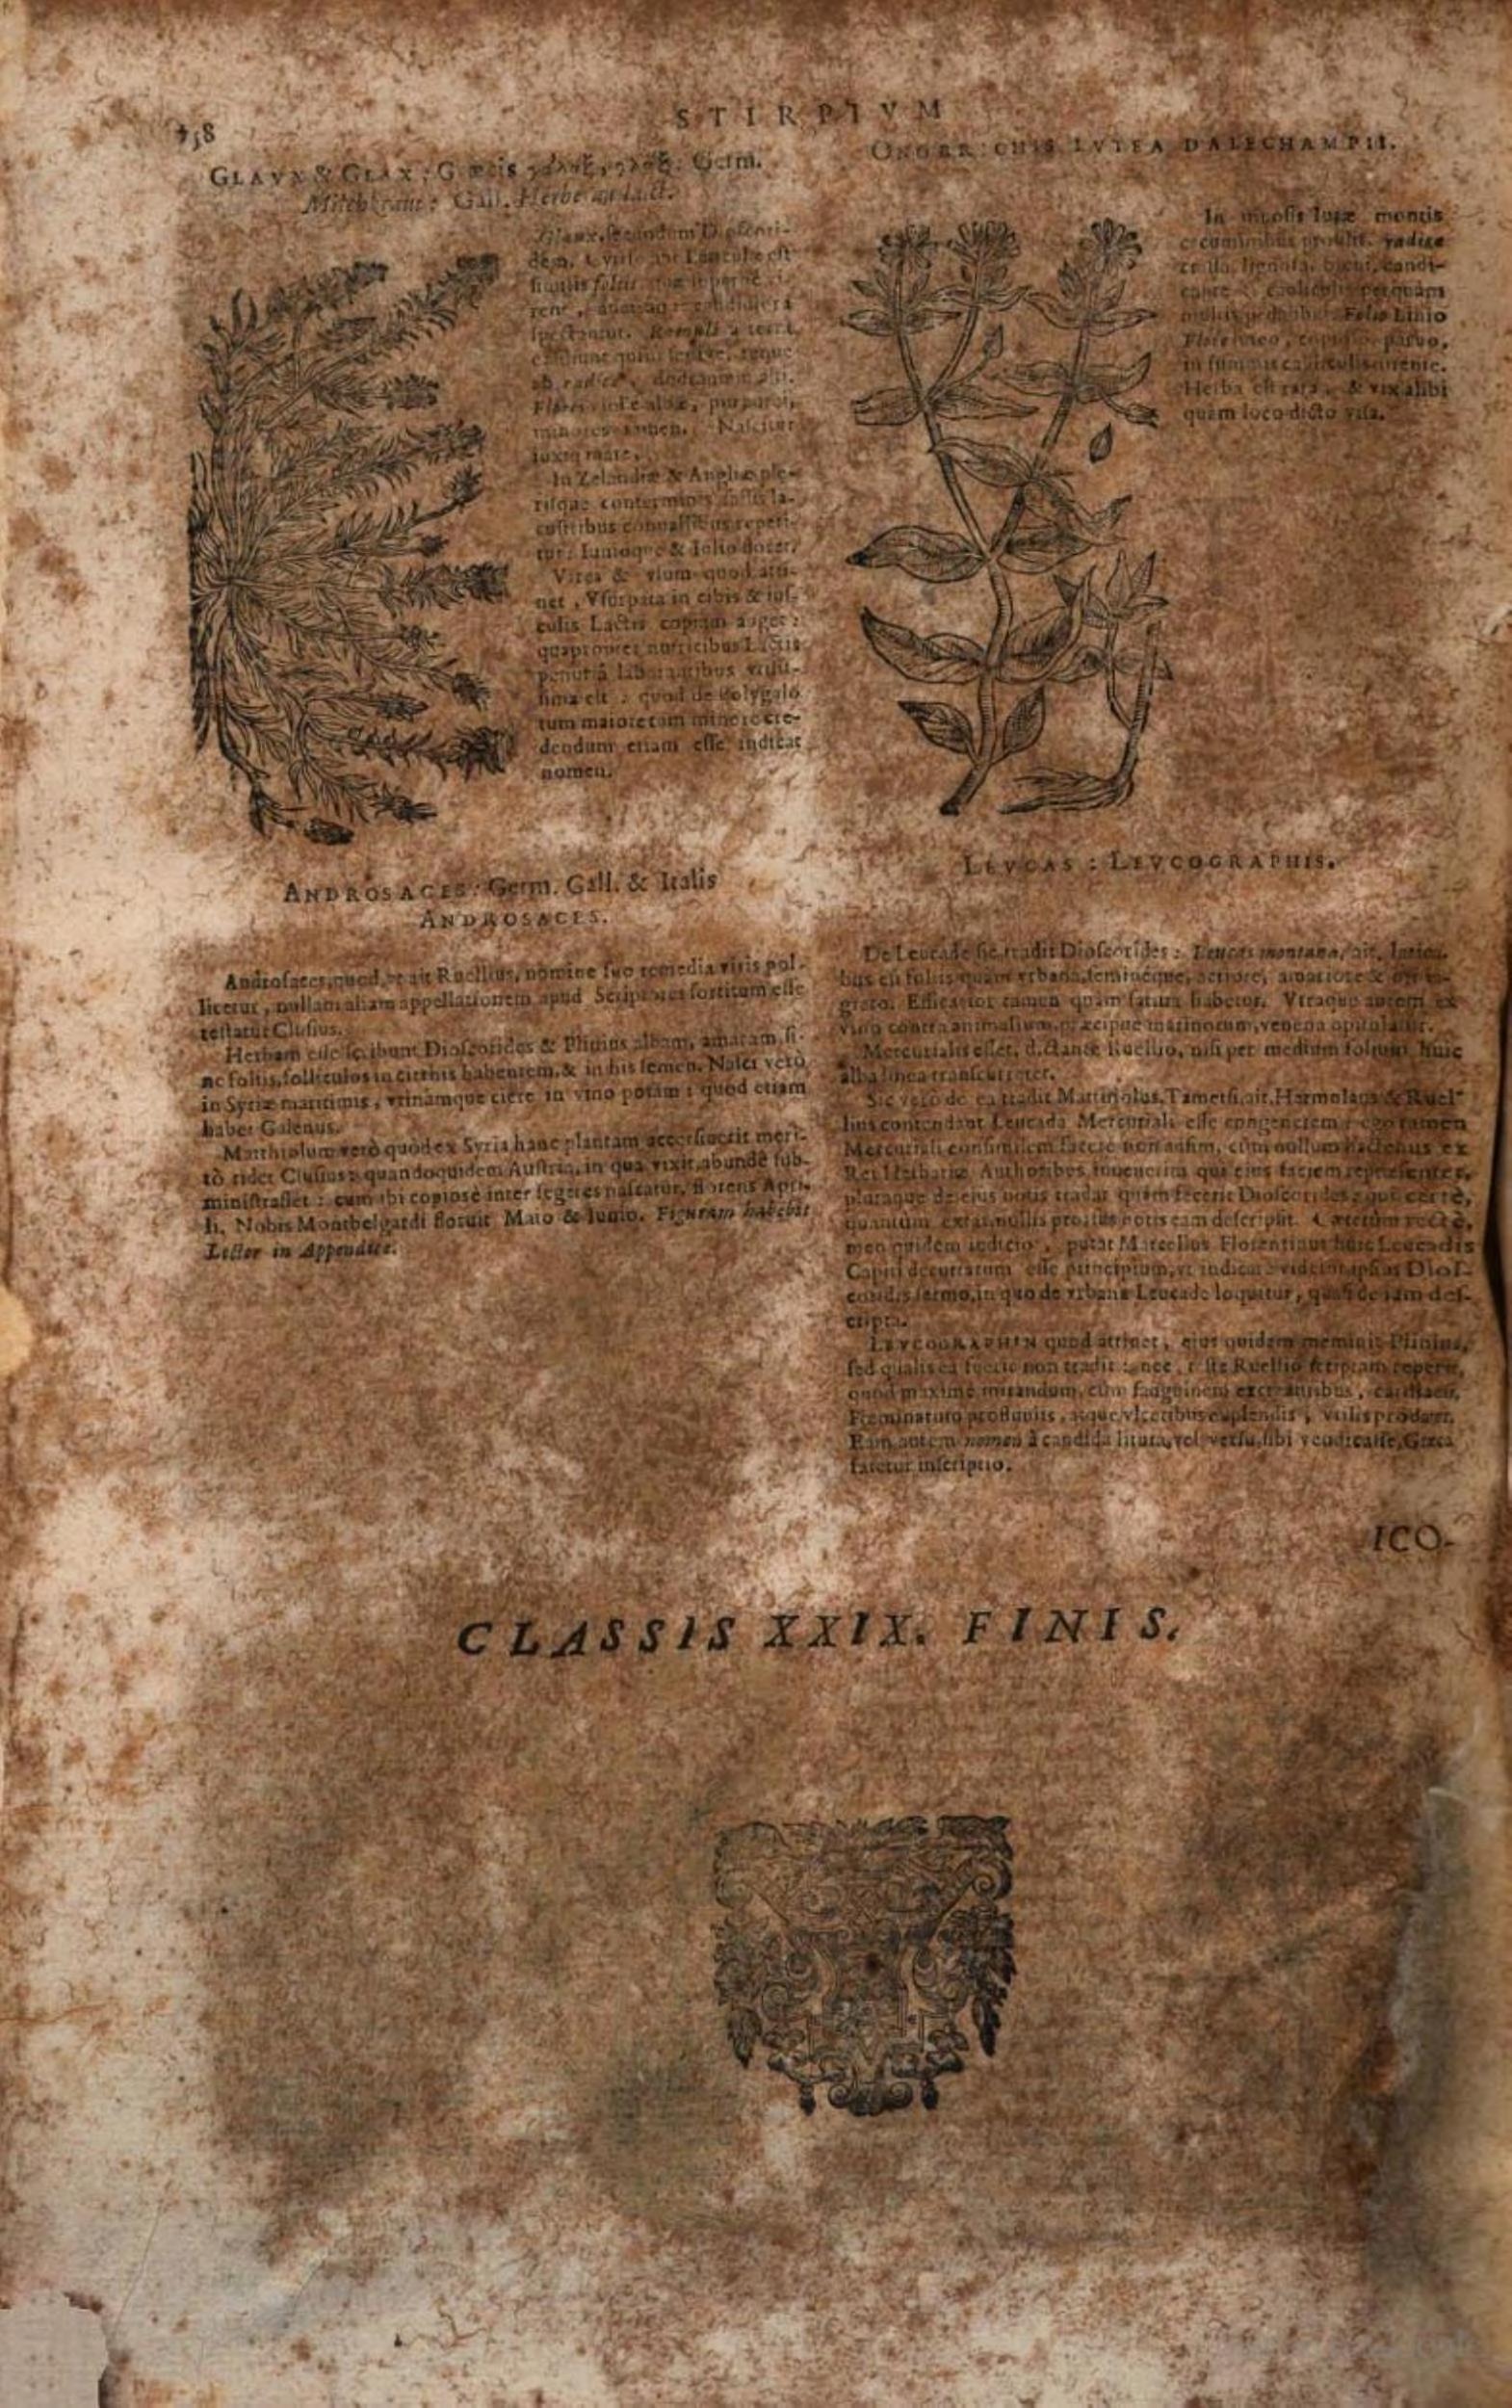 STIRPIVM
GLAVX & GLAX: Græcis γάλαξ, γλὰξ: Germ.
Milchkraut: Gall. Herbe au laict.
Glaux, secundum Dioscori-
dem, Cytiso aut Lenticulæ est
similis foliis
rent, candidiora
spectantur. Ramuli a terra
exiliunt quini seníve, teque
ab radice, dodrantem alti.
Flores violæ albæ, purpurei,
minores tamen. Nascitur
iuxta mare.
In Zelandiæ & Angliæ ple-
risque conterminis salsis la-
custribus conuallibus reperi-
tur: Iunioque & Iulio floret.
Vires & vsum quod atti-
net, Vsurpata in cibis & ius-
culis Lactis copiam auget:
quapropter nutricibus Lactis
penuriâ laborantibus vtilis-
sima est: quod de Polygalo
tum maiore tum minore cre-
dendum etiam esse, indicat
nomen.
ANDROSACES: Germ. Gall. & Italis
ANDROSACES.
Androsaces, quod, vt ait Ruellius, nomine suo remedia viris pol-
licetur, nullam aliam appellationem apud Scriptores sortitum esse
testatur Clusius.
Herbam esse scribunt Dioscorides & Plinius albam, amaram, si-
ne foliis, folliculos in cirrhis habentem, & in his semen. Nasci verò
in Syriæ maritimis, vrinamque ciere in vino potam: quod etiam
habet Galenus.
Matthiolum verò quòd ex Syria hanc plantam accersiuerit meri-
tò ridet Clusius: quandoquidem Austria, in qua vixit, abundè sub-
ministrasset: cum ibi copiosè inter segetes nascatur, florens Apri-
li. Nobis Montbelgardi floruit Maio & Iunio. Figuram habebit
Lector in Appendice.
ONOBRICHIS LVTEA DALECHAMPII.
In niuosis Iuræ montis
cacuminibus prouenit, radice
lignosa, candi-
cante & cauliculis perquàm
multis pedalibus. Folio Linio
Flore parvo,
in summis cauliculis
Herba est rara, & vix alibi
quàm loco dicto visa.
LEVCAS: LEVCOGRAPHIS.
De Leucade sic tradit Dioscorides: Leucas montana, ait, latiori-
bus est foliis quàm vrbana, semineque, acriore, amariore & ori in-
grato. Efficacior tamen quàm satiua habetur. Vtraque autem ex
vino contra animalium, præcipue marinorum, venena opitulatur.
Mercurialis esset, dictante Ruellio, nisi per medium folium, huic
alba linea transcurreret.
Sic verò de ea tradit Matthiolus, Tametsi, ait, Hermolaus & Ruel-
lius contendant Leucada Mercuriali esse congenerem: ego tamen
Mercuriali consimilem facere non ausim, cùm nullum hactenus ex
Rei Herbariæ Authoribus inuenerim qui eius faciem repræsentet,
pluraque de eius notis tradat quàm fecerit Dioscorides: qui certè,
quantum extat, nullis prorsus notis eam descripsit. Cæterùm rectè,
meo quidem iudicio, putat Marcellus Florentinus huic Leucadis
Capiti decurtatum esse principium, vt indicare videtur ipsius Dios-
coridis sermo, in quo de vrbana Leucade loquitur, quasi de iam des-
cripta.
LEVCOGRAPHIN quod attinet, eius quidem meminit Plinius,
sed qualis ea fuerit non tradit: nec, teste Ruellio scriptam reperit,
quod maximè mirandum, cùm sanguinem excreantibus, cardiacis,
Fœminarum profluuiis, atque vlceribus explendis, vtilis prodatur.
Eam autem nomen à candida litura, vel versu, sibi vendicasse, Græca
fatetur inscriptio.
ICO-
CLASSIS XXIX. FINIS.